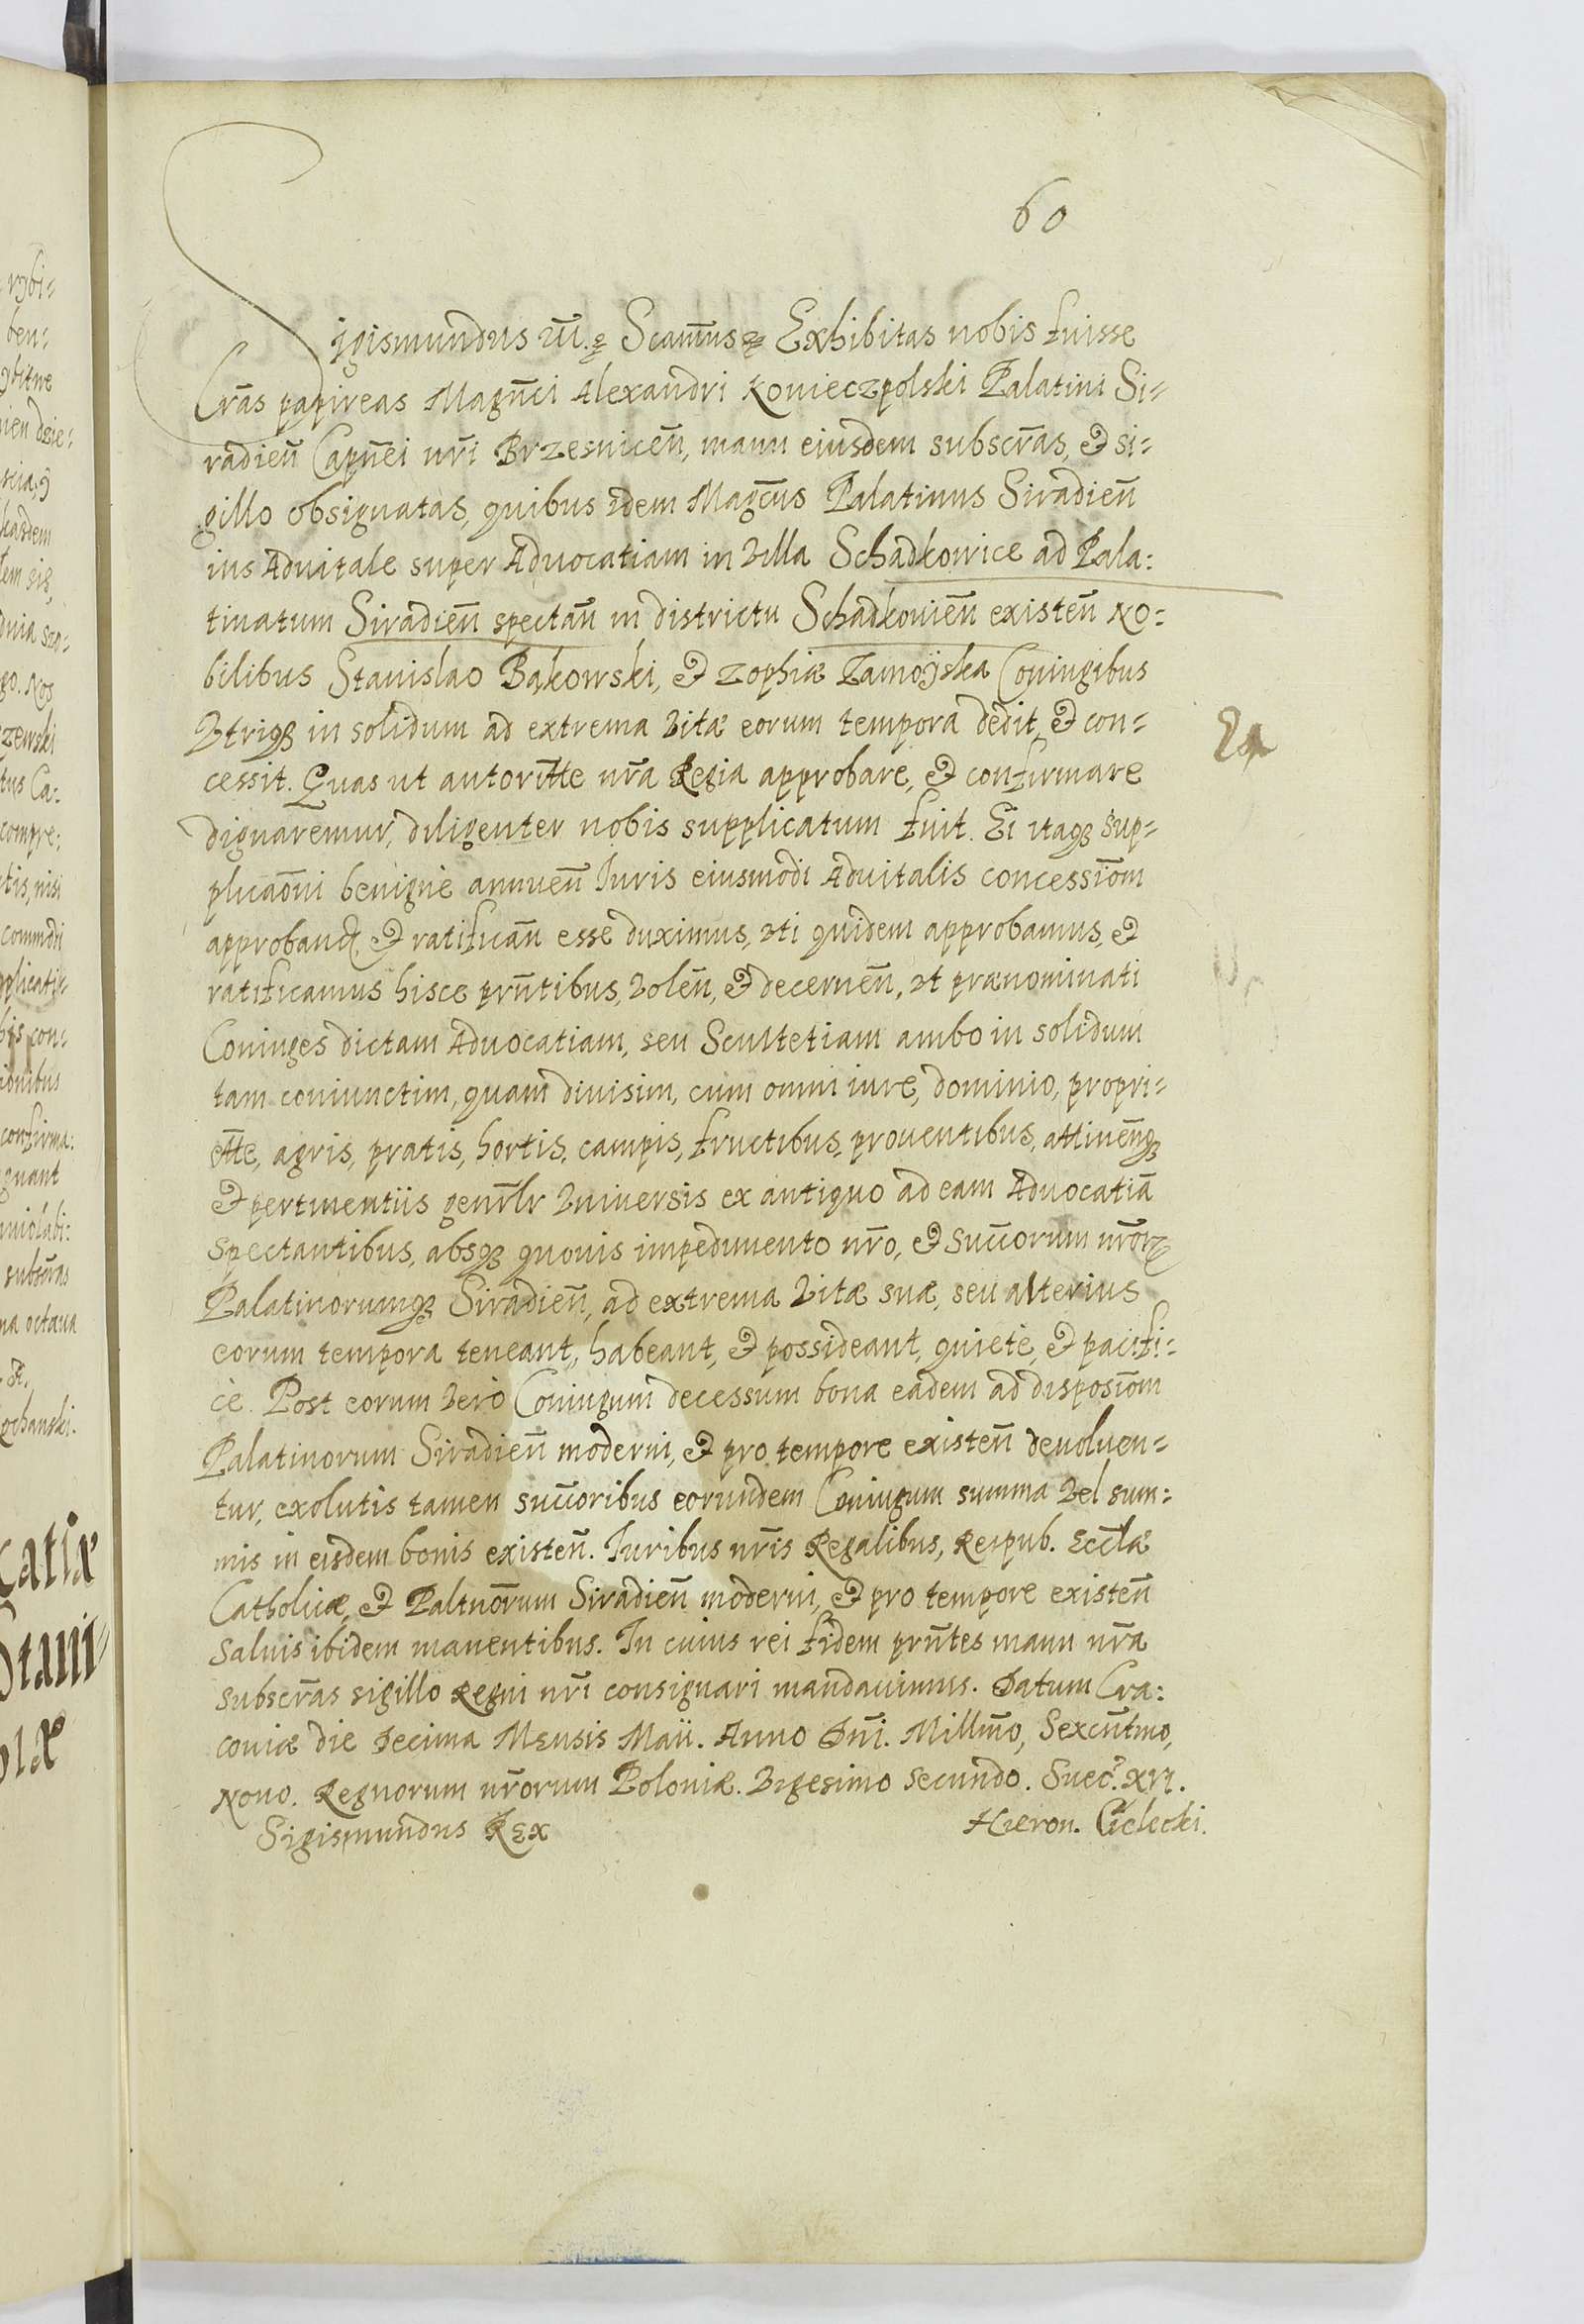 60
Sigismundus III. etc. Scamus etc. Exhibitas nobis fuisse
Lras papireas Magnci Alexandri Konieczpolski Palatini Si-
radien Capnei nri Brzesnicen, manu eiusdem subscras, et si-
gillo obsignatas, quibus idem Magcus Palatinus Siradien
ius Aduitale super Aduocatiam in Villa Schadkowice ad Pala:
tinatum Siradien spectan in districtu Schadkouien existen No-
bilibus Stanislao Bąkowski, et Zophiæ Zamoÿska Coniugibus
Vtrique in solidum ad extrema Vitæ eorum tempora dedit, et con-
cessit. Quas ut autoritte nra Regia approbare, et confirmare
dignaremur, diligenter nobis supplicatum fuit. Ei itaque sup-
plicaoni benignè annuen Iuris eiusmodi Aduitalis concessiom
approband. et ratifican esse duximus, vti quidem approbamus, et
ratificamus hisce prntibus, Volen, et decernen, vt prænominati
Coniuges dictam Aduocatiam, seu Scultetiam ambo in solidum
tam coniunctim, quam diuisim, cum omni iure, dominio, propri-
ette, agris, pratis, hortis, campis, fructibus, prouentibus, attinenque
et pertinentiis genrlr Vniuersis ex antiquo ad eam Aduocatiā
spectantibus, absque quouis impedimento nro, et succorum nrorum
Palatinorumque Siradien, ad extrema Vitæ suæ, seu alterius
eorum tempora teneant, habeant, et possideant, quietè, et pacifi-
cè. Post eorum Verò Coniugum decessum bona eadem ad disposiom
Palatinorum Siradien moderni, et pro tempore existen deuoluen-
tur, exolutis tamen succoribus eorundem Coniugum summa Vel sum-
mis in eisdem bonis existen. Iuribus nris Regalibus, Reipub. Eccłæ
Catholicæ, et Paltnorum Siradien moderni, et pro tempore existen
saluis ibidem manentibus. In cuius rei fidem prntes manu nra
subscras sigillo Regni nri consignari mandauimus. Datum Cra:
couiæ die Decima Mensis Maii. Anno Dni. Millmo, Sexcntmo,
Nono. Regnorum nrorum Poloniæ. Vigesimo Secundo. Suec. XVI.
Sigismundus Rex
Hieron. Cielecki.